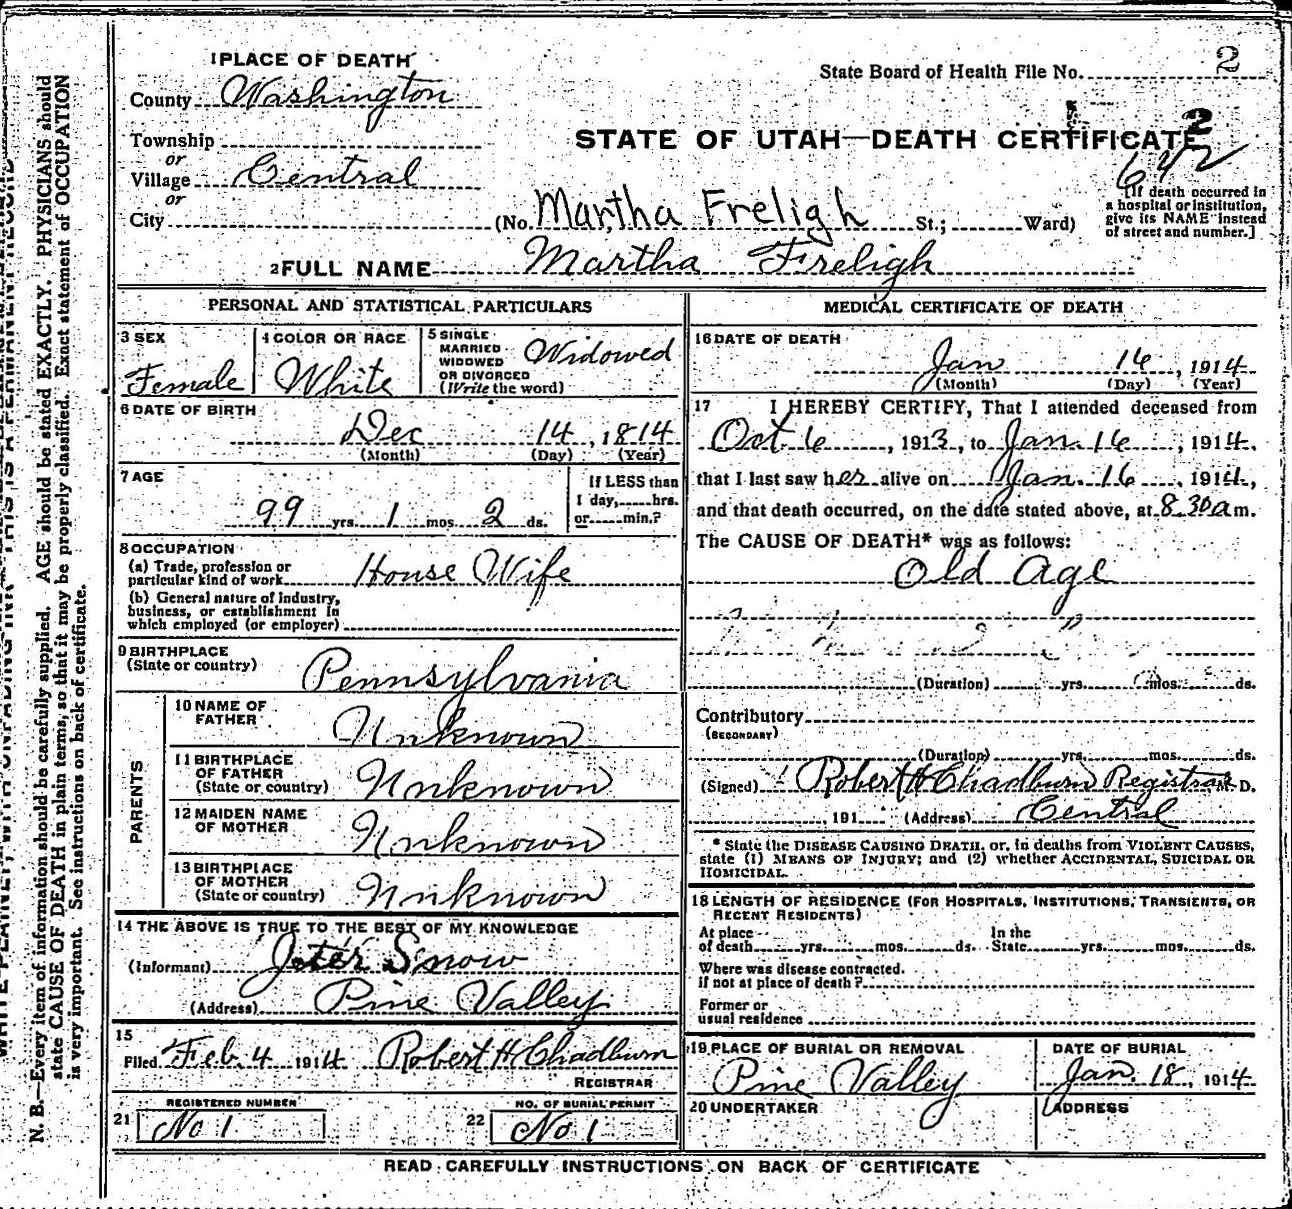 1 PLACE OF DEATH
County Washington
Township
or
Village Central
or
City
State Board of Health File No. 2
STATE OF UTAH—DEATH CERTIFICATE
2
642
(No. Martha Freligh St.; Ward)
[If death occurred in
a hospital or institution,
give its NAME instead
of street and number.]
2 FULL NAME Martha Freligh
PERSONAL AND STATISTICAL PARTICULARS
3 SEX
Female
4 COLOR OR RACE
White
5 SINGLE
MARRIED
WIDOWED
OR DIVORCED
(Write the word)
Widowed
6 DATE OF BIRTH
Dec 14, 1814
(Month) (Day) (Year)
7 AGE
99 yrs. 1 mos. 2 ds.
If LESS than
1 day, hrs.
or min.?
8 OCCUPATION
(a) Trade, profession or
particular kind of work House Wife
(b) General nature of industry,
business, or establishment in
which employed (or employer)
9 BIRTHPLACE
(State or country) Pennsylvania
PARENTS
10 NAME OF
FATHER Unknown
11 BIRTHPLACE
OF FATHER
(State or country) Unknown
12 MAIDEN NAME
OF MOTHER Unknown
13 BIRTHPLACE
OF MOTHER
(State or country) Unknown
14 THE ABOVE IS TRUE TO THE BEST OF MY KNOWLEDGE
(Informant) Jeter Snow
(Address) Pine Valley
15
Filed Feb. 4 1914 Robert H Chadburn
REGISTRAR
REGISTERED NUMBER
21 No 1
NO. OF BURIAL PERMIT
22 No. 1
MEDICAL CERTIFICATE OF DEATH
16 DATE OF DEATH
Jan 16, 1914
(Month) (Day) (Year)
17 I HEREBY CERTIFY, That I attended deceased from
Oct. 6, 1913, to Jan. 16, 1914.
that I last saw her alive on Jan. 16, 1914,
and that death occurred, on the date stated above, at 8.30 a m.
The CAUSE OF DEATH* was as follows:
Old Age
(Duration) yrs. mos. ds.
Contributory
(SECONDARY)
(Duration) yrs. mos. ds.
(Signed) Robert H Chadburn Registrar M. D.
, 191 (Address) Central
* State the DISEASE CAUSING DEATH, or, in deaths from VIOLENT CAUSES,
state (1) MEANS OF INJURY; and (2) whether ACCIDENTAL, SUICIDAL OR
HOMICIDAL.
18 LENGTH OF RESIDENCE (FOR HOSPITALS, INSTITUTIONS, TRANSIENTS, OR
RECENT RESIDENTS)
At place
of death yrs. mos. ds.
In the
State yrs. mos. ds.
Where was disease contracted,
if not at place of death?
Former or
usual residence
19 PLACE OF BURIAL OR REMOVAL
Pine Valley
DATE OF BURIAL
Jan. 18, 1914
20 UNDERTAKER
ADDRESS
READ CAREFULLY INSTRUCTIONS ON BACK OF CERTIFICATE
N. B.—Every item of information should be carefully supplied. AGE should be stated EXACTLY. PHYSICIANS should
state CAUSE OF DEATH in plain terms, so that it may be properly classified. Exact statement of OCCUPATION
is very important. See instructions on back of certificate.